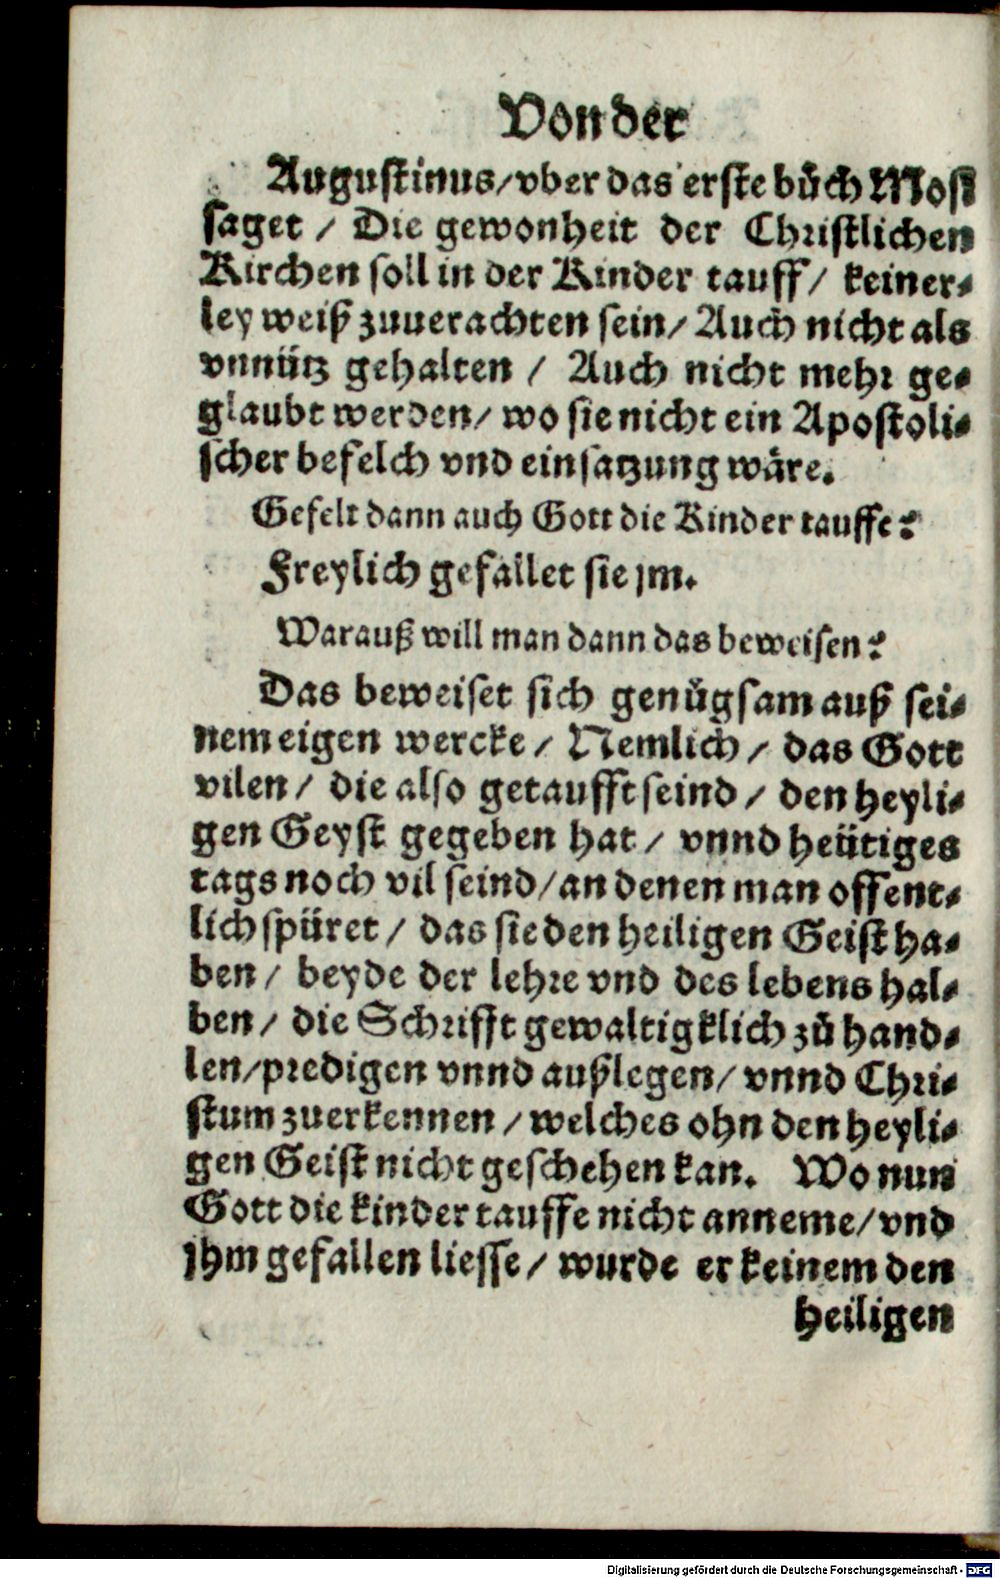 Von der
Augustinus/vber das erste bůch Mosi
saget / Die gewonheit der Christlichen
Kirchen soll in der Kinder tauff/ keiner-
ley weiß zuuerachten sein/ Auch nicht als
vnnütz gehalten / Auch nicht mehr ge-
glaubt werden/ wo sie nicht ein Apostoli-
scher befelch vnd einsatzung wäre.
Gefelt dann auch Gott die Kinder tauffe?
Freylich gefallet sie jm.
Warauß will man dann das beweisen?
Das beweiset sich genůgsam auß sei-
nem eigen wercke / Nemlich / das Gott
vilen / die also getaufft seind / den heyli-
gen Geyst gegeben hat / vnnd heütiges
tags noch vil seind/an denen man offent-
lich spüret / das sie den heiligen Geist ha-
ben / beyde der lehre vnd des lebens hal-
ben / die Schrifft gewaltigklich zů hand-
len/predigen vnnd außlegen/ vnnd Chri-
stum zuerkennen / welches ohn den heyli-
gen Geist nicht geschehen kan. Wo nun
Gott die kinder tauffe nicht anneme/vnd
jhm gefallen liesse / wurde er keinem den
heiligen
Digitalisierung gefördert durch die Deutsche Forschungsgemeinschaft - DFG